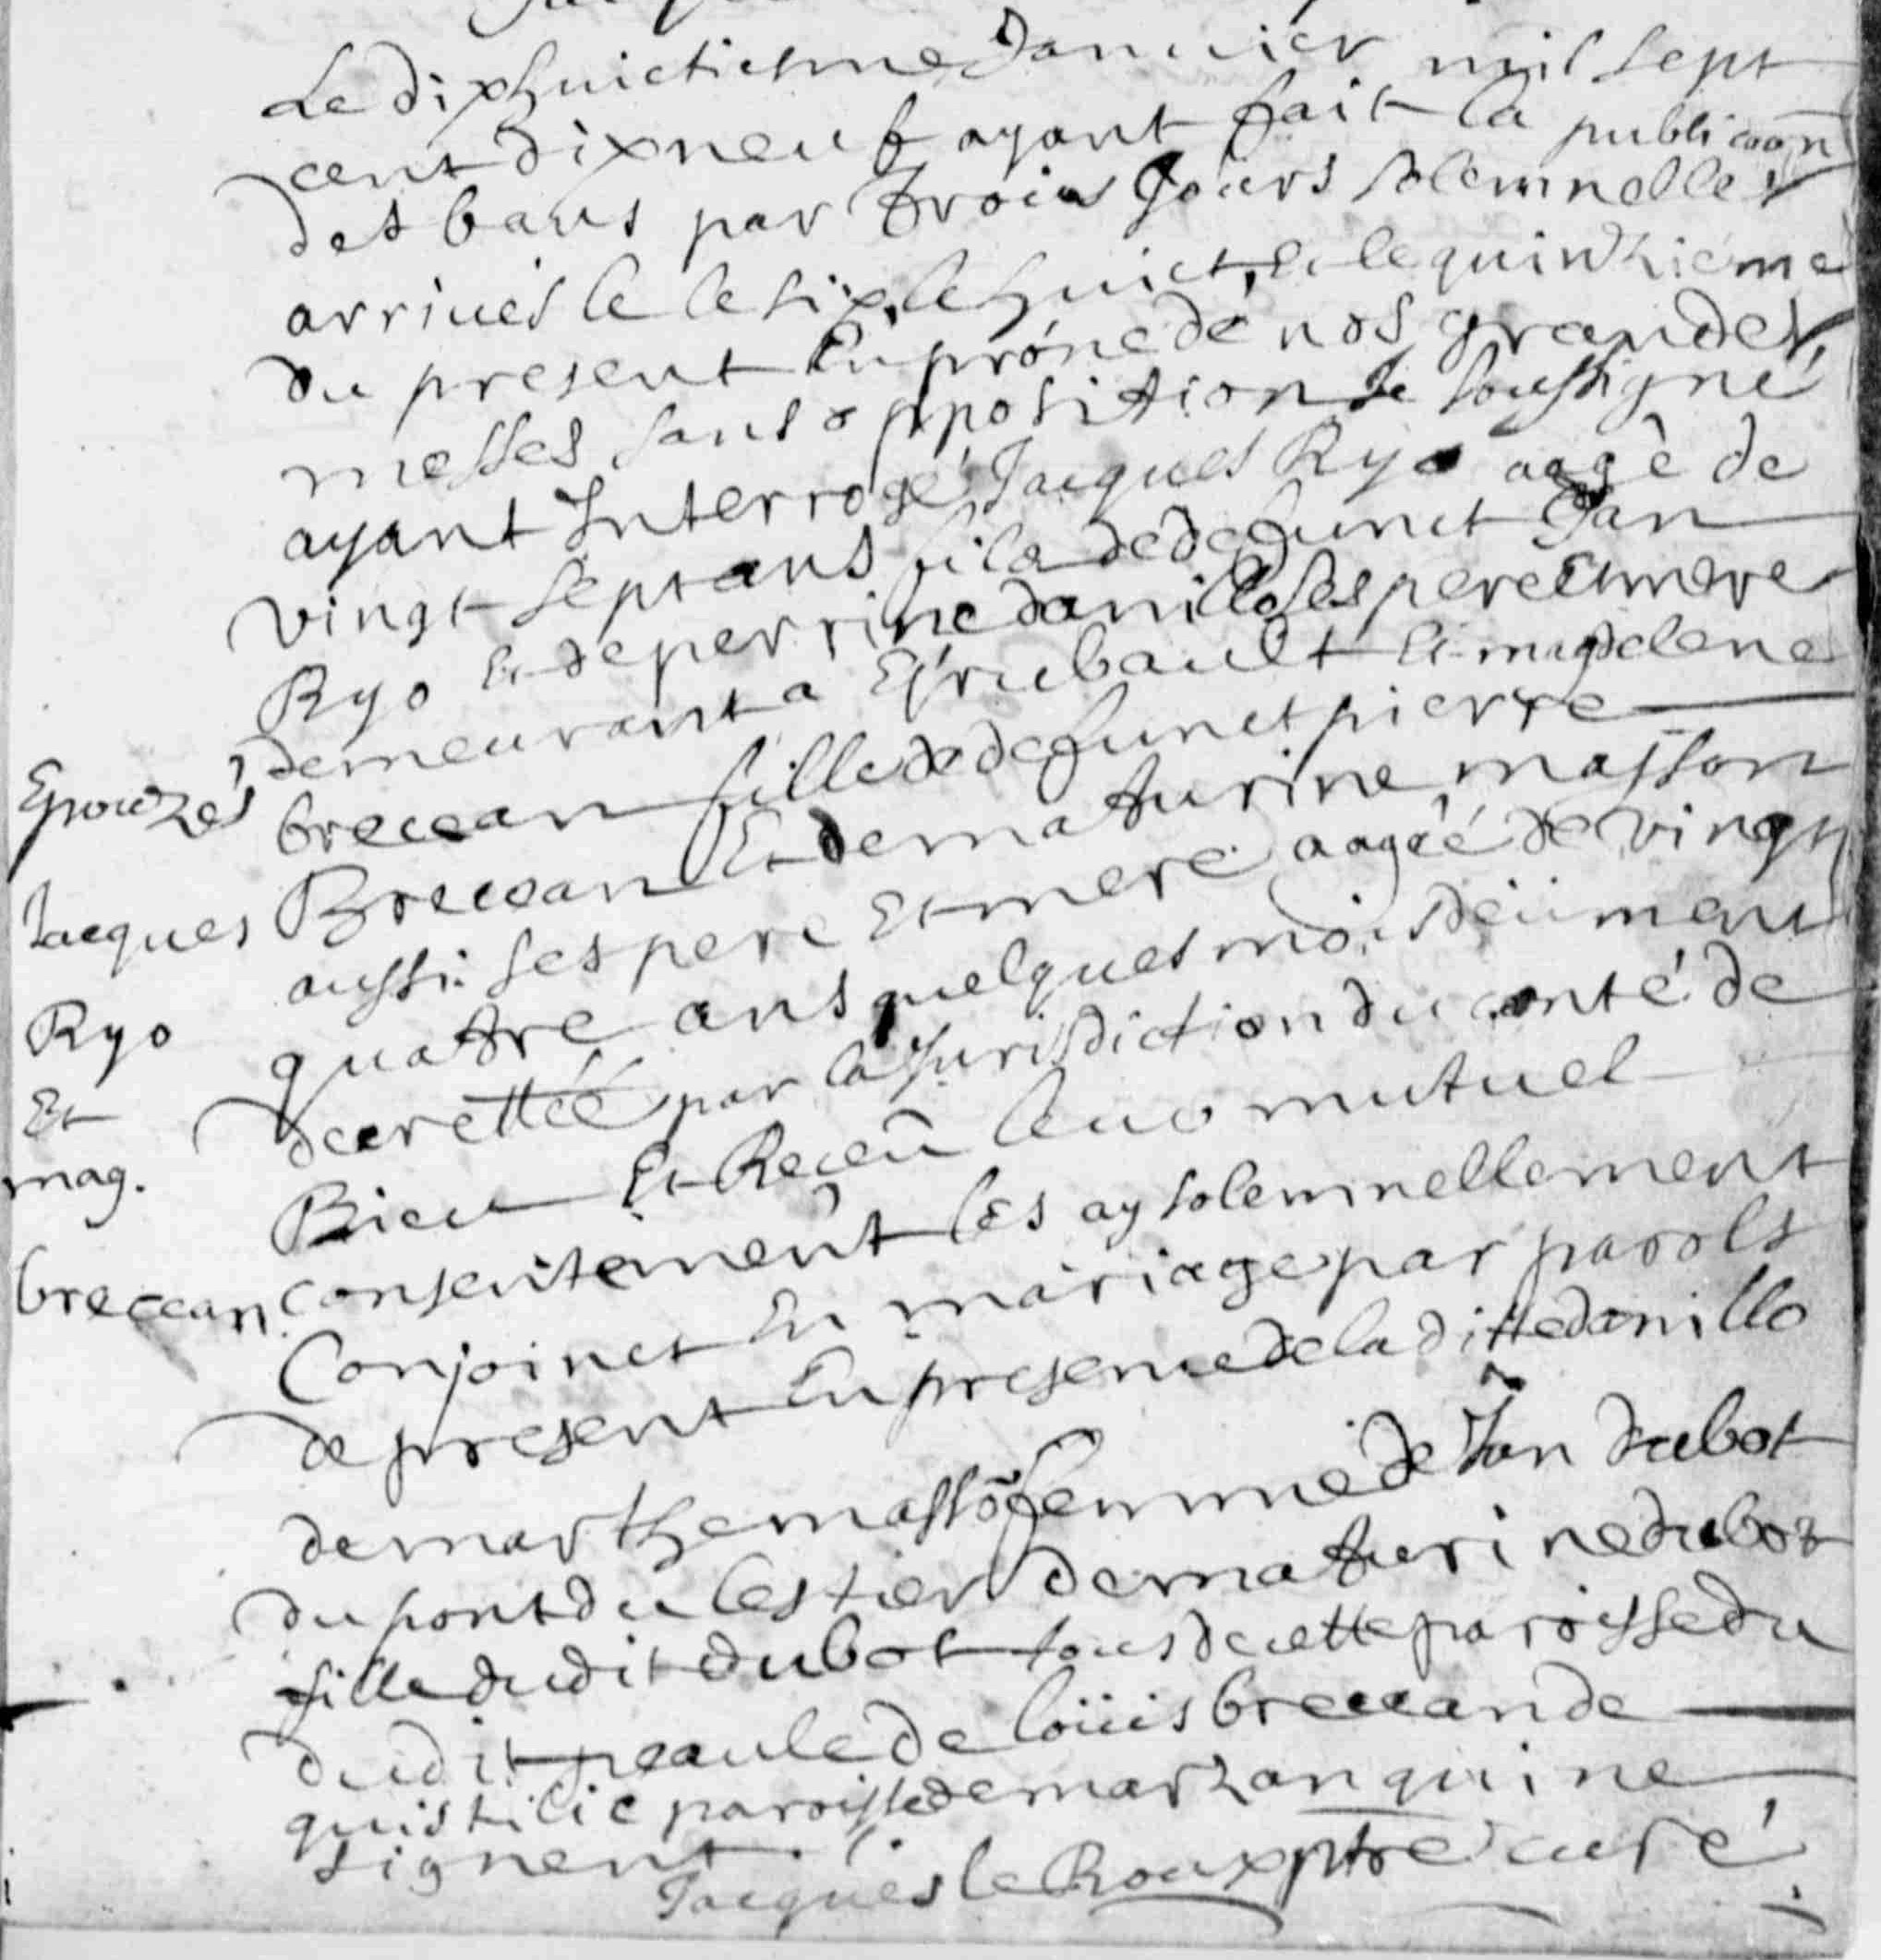 Le dixhuictiesme Januier mil sept
cent dixneuf ayant fait la publicaon
des bans par Trois Jours solemnelles
arriués le le six, le huict, Et le quinzieme
du present En prône de nos grandes
messes sans opposition Je soussigné
ayant Interrogé Jacques Ryo aagé de
vingt sept ans fils de defunct Jan
Ryo Et de perrine danillo ses pere Et mere
demeurant a Egrubault Et magdelene
breccan fille de defunct pierre
Breccan Et de maturine masson
aussi ses pere Et mere aagée de vingt
quatre ans quelques mois deüment
decrettée par la Jurisdiction du conté de
Bieu Et Receu leur mutuel
consentement les ay solemnellement
Conjoinct En mariage par parols
de present En presence de la ditte danillo
de marthe massõ femme de Jan dubot
du pont du lestier de maturine dubot
fille dudit dubot tous de cette paroisse du
dudit peaule de loüis breccan de
quistilic paroisse de marzan qui ne
signent.
Jacques le Roux ptre curé
Epouzés
Jacques
Ryo
Et
mag.
breccan